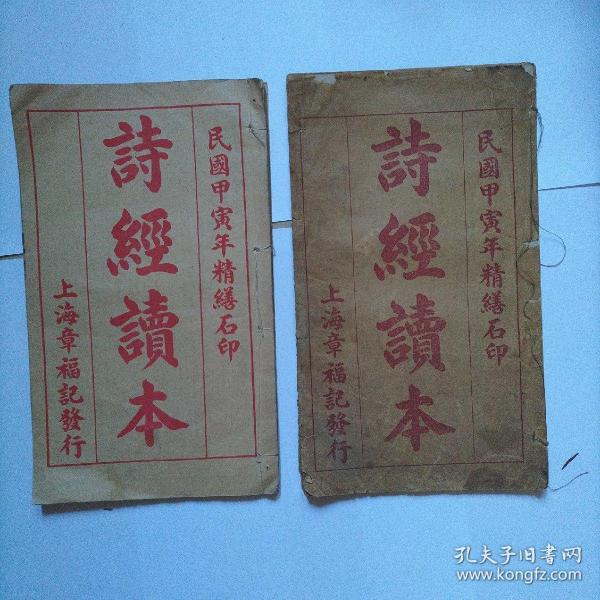 民國甲寅年精繕石印
詩經讀本
上海章福記發行
民國甲寅年精繕石印
詩經讀本
上海章福記發行
孔夫子旧書网
www.kongfz.com